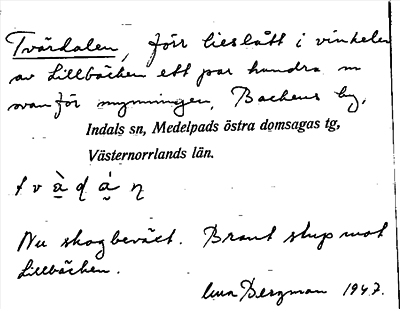 Tvärdalen, förr lieslått i vinkeln
av Lillbäcken ett par hundra m
ovanför mynningen, Backens by,
Indals sn, Medelpads östra domsagas tg,
Västernorrlands län.
Nu skogbeväxt. Brant stup mot
Lillbäcken.
Bergman 1947.